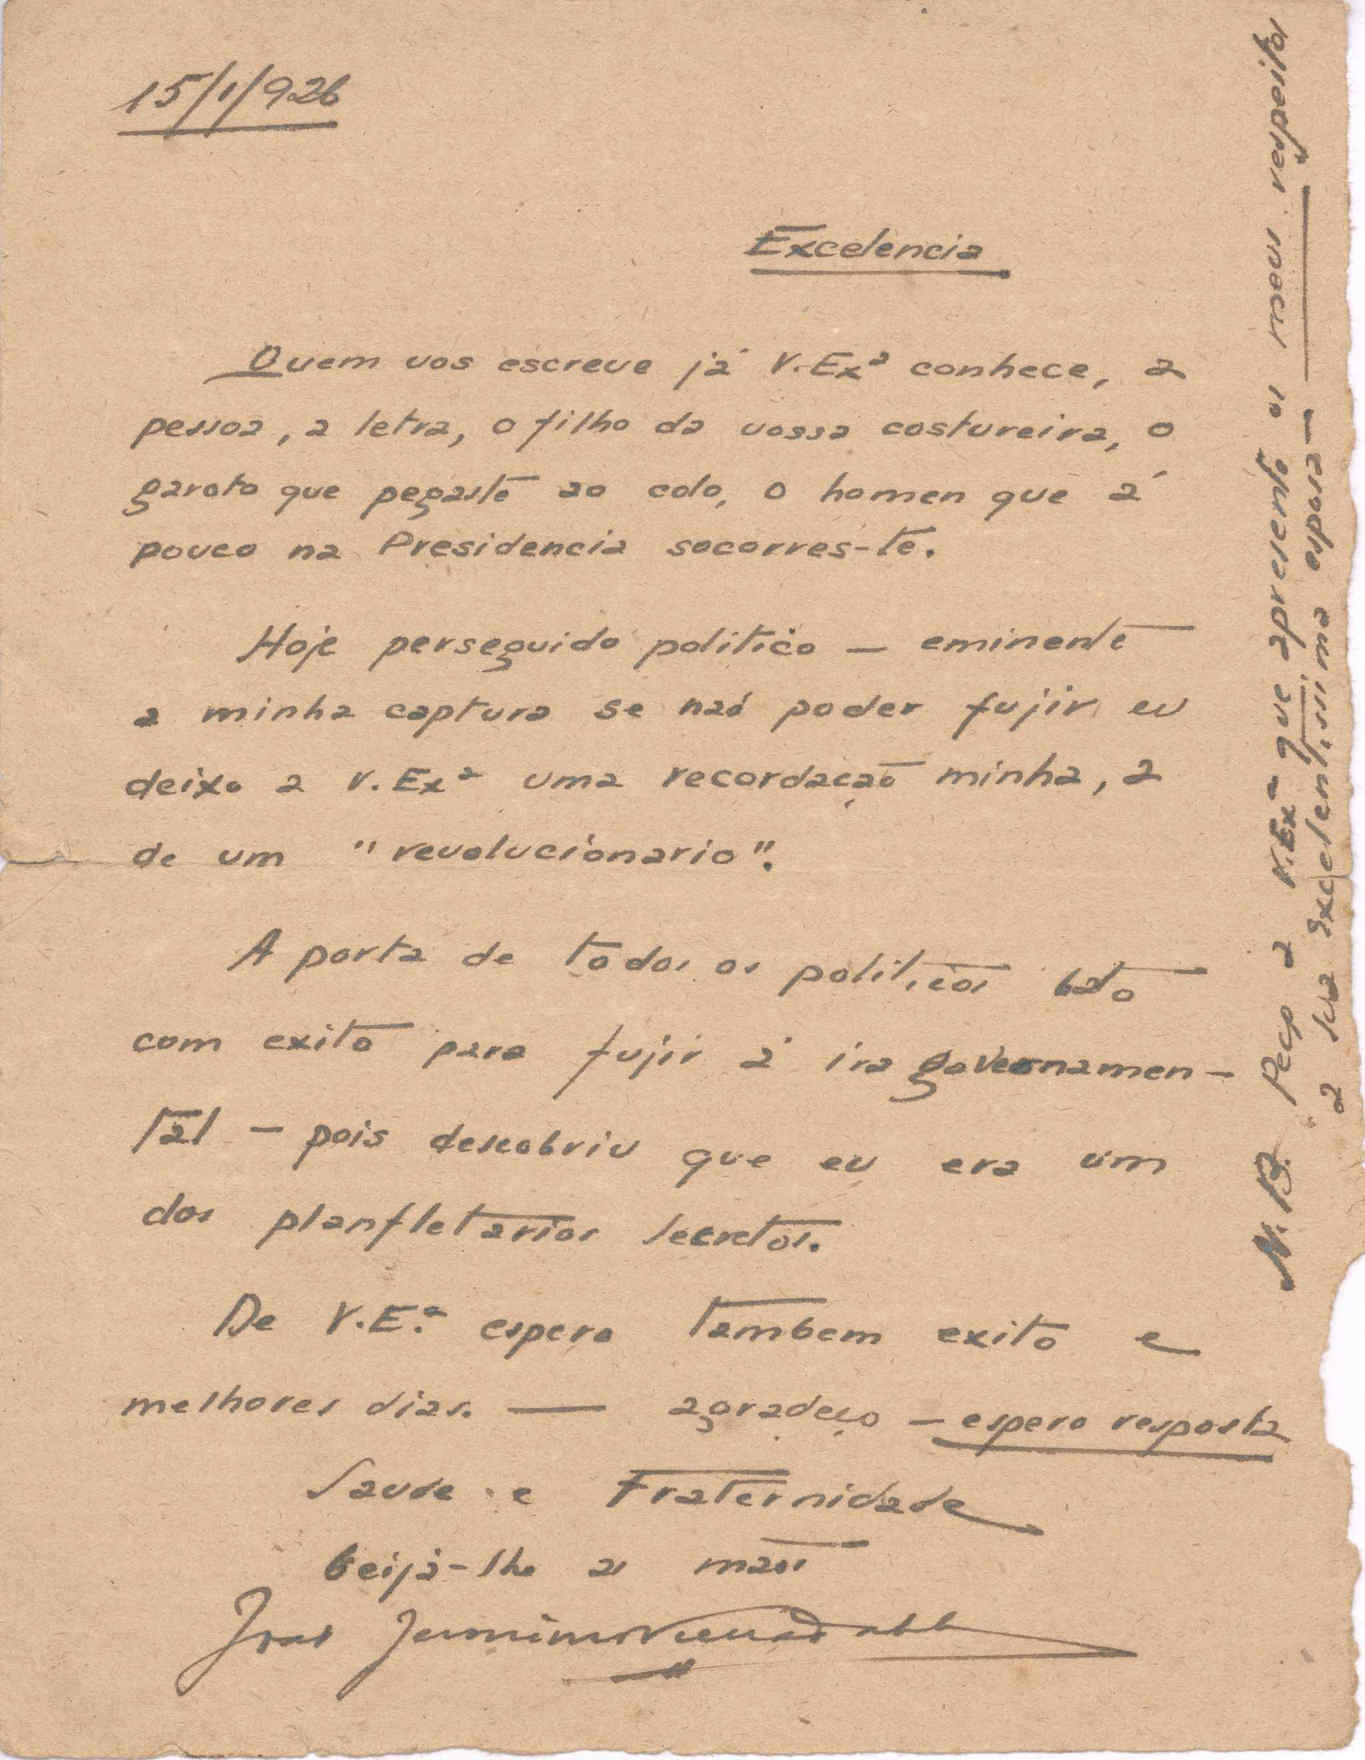 15/1/926
Excelencia
Quem vos escreve já V. Exª conhece, a
pessoa, a letra, o filho da vossa costureira, o
garoto que pegaste ao colo, o homen que á
pouco na Presidencia socorres-te.
Hoje perseguido politico — eminente
a minha captura se naó poder fujir eu
deixo a V. Exª uma recordação minha, a
de um "revolucionario".
A porta de todos os politicos bato
com exito para fujir á ira governamen-
tal — pois descobriu que eu era um
dos planfletarios secretos.
De V. E.ª espero tambem exito e
melhores dias. — agradeço — espero resposta
Saude e Fraternidade
beija-lhe as mãos
N. B. Peço a V. Exª que apresente os meus respeitos
a sua Excelentissima esposa —